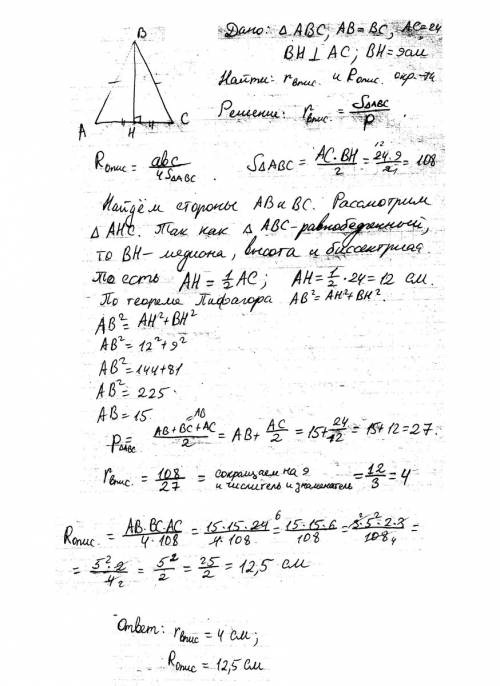 B
A H C
Дано: △ ABC, AB = BC, AC = 24
BH ⊥ AC; BH = 9 см
Найти: r впис. и R опис. окр-ти
Решение: r впис. = S△ABC / p.
R опис = abc / 4S△ABC. S△ABC = AC·BH / 2 = 24·9 / 2 = 108
Найдём стороны AB и BC. Рассмотрим
△ AHC. Так как △ ABC - равнобедренный,
то BH - медиана, высота и биссектриса.
То есть AH = 1/2 AC; AH = 1/2 · 24 = 12 см.
По теореме Пифагора AB² = AH² + BH².
AB² = AH² + BH²
AB² = 12² + 9²
AB² = 144 + 81
AB² = 225
AB = 15
p△ABC = AB + BC + AC / 2 = AB + AC / 2 = 15 + 24 / 2 = 15 + 12 = 27.
r впис. = 108 / 27 = сокращаем на 9 и числитель и знаменатель = 12 / 3 = 4
R опис. = AB·BC·AC / 4·108 = 15·15·24 / 4·108 = 15·15·6 / 108 = 3²·5²·2·3 / 108 =
= 5²·2 / 4 = 5² / 2 = 25 / 2 = 12,5 см
Ответ: r впис = 4 см;
R опис = 12,5 см